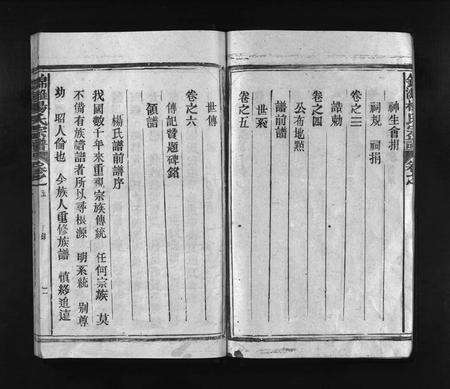 神生會捐
祠規 祠捐
卷之三
誥勅
卷之四
公布地點
譜前譜
世系
卷之五
世傳
卷之六
傳記贊題碑銘
領譜
楊氏譜前譜序
我國數千年來重視宗族傳統 任何宗族 莫
不備有族譜譜者所以尋根源 明系統 別尊
幼 昭人倫也 今族人重修族譜 慎終追遠